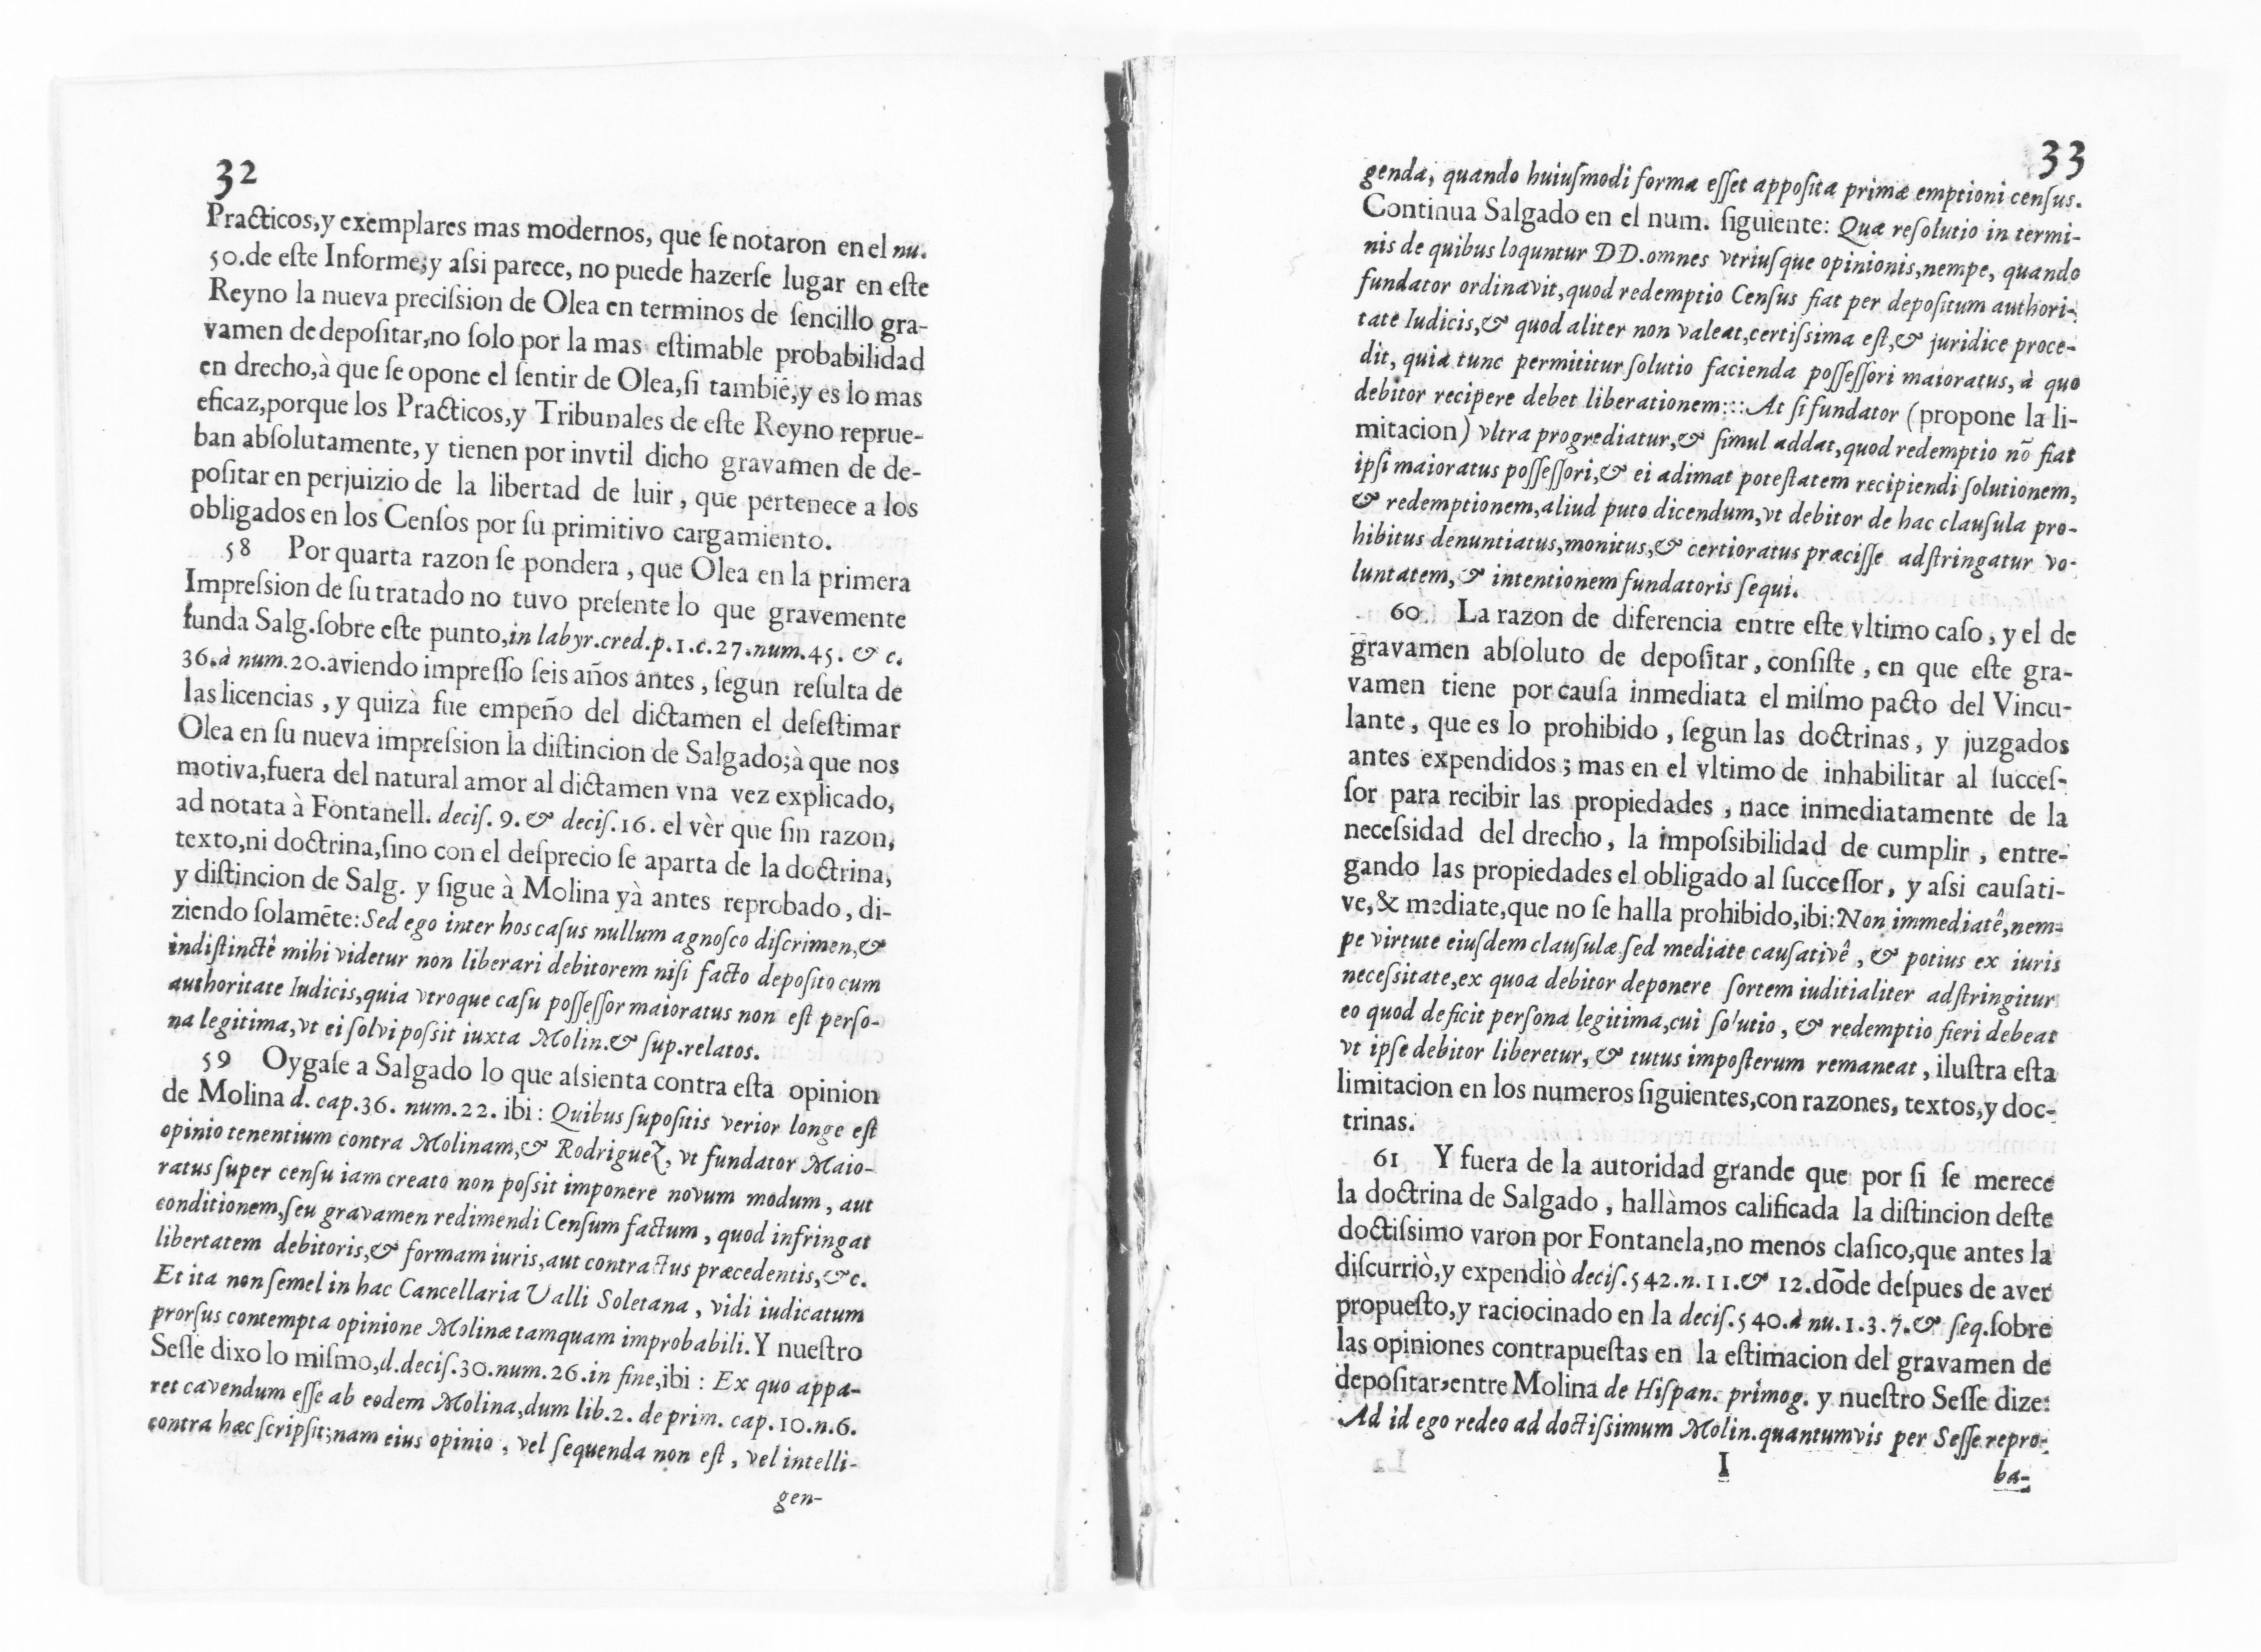 32
Practicos,y exemplares mas modernos, que ſe notaron en el nu.
50.de eſte Informe;y aſsi parece, no puede hazerſe lugar en eſte
Reyno la nueva preciſsion de Olea en terminos de ſencillo gra-
vamen de depoſitar,no ſolo por la mas eſtimable probabilidad
en drecho,à que ſe opone el ſentir de Olea,ſi tambiẽ,y es lo mas
eficaz,porque los Practicos,y Tribunales de eſte Reyno reprue-
ban abſolutamente, y tienen por invtil dicho gravamen de de-
poſitar en perjuizio de la libertad de luir , que pertenece a los
obligados en los Cenſos por ſu primitivo cargamiento.
58 Por quarta razon ſe pondera , que Olea en la primera
Impreſsion de ſu tratado no tuvo preſente lo que gravemente
funda Salg.ſobre eſte punto,in labyr.cred.p.1.c.27.num.45. & c.
36.à num.20.aviendo impreſſo ſeis años antes , ſegun reſulta de
las licencias , y quizà fue empeño del dictamen el deſeſtimar
Olea en ſu nueva impreſsion la diſtincion de Salgado;à que nos
motiva,fuera del natural amor al dictamen vna vez explicado,
ad notata à Fontanell. deciſ. 9. & deciſ.16. el vèr que ſin razon,
texto,ni doctrina,ſino con el deſprecio ſe aparta de la doctrina,
y diſtincion de Salg. y ſigue à Molina yà antes reprobado, di-
ziendo ſolamẽte: Sed ego inter hos caſus nullum agnoſco diſcrimen,&
indiſtinctê mihi videtur non liberari debitorem niſi facto depoſito cum
authoritate Iudicis,quia vtroque caſu poſſeſſor maioratus non eſt perſo-
na legitima,vt ei ſolvi poſsit iuxta Molin.& ſup.relatos.
59 Oygaſe a Salgado lo que aſsienta contra eſta opinion
de Molina d. cap.36. num.22. ibi : Quibus ſupoſitis verior longe eſt
opinio tenentium contra Molinam,& Rodriguez, vt fundator Maio-
ratus ſuper cenſu iam creato non poſsit imponere novum modum , aut
conditionem,ſeu gravamen redimendi Cenſum factum , quod infringat
libertatem debitoris,& formam iuris,aut contractus præcedentis,&c.
Et ita non ſemel in hac Cancellaria Valli Soletana , vidi iudicatum
prorſus contempta opinione Molinæ tamquam improbabili. Y nueſtro
Seſſe dixo lo miſmo,d.deciſ.30.num.26.in fine,ibi : Ex quo appa-
ret cavendum eſſe ab eodem Molina,dum lib.2. de prim. cap.10.n.6.
contra hæc ſcripſit;nam eius opinio , vel ſequenda non eſt , vel intelli-
gen-
33
genda, quando huiuſmodi forma eſſet appoſita primæ emptioni cenſus.
Continua Salgado en el num. ſiguiente: Quæ reſolutio in termi-
nis de quibus loquntur DD.omnes vtriuſque opinionis,nempe, quando
fundator ordinavit,quod redemptio Cenſus fiat per depoſitum authori-
tate Iudicis,& quod aliter non valeat,certiſsima eſt,& juridice proce-
dit, quia tunc permititur ſolutio facienda poſſeſſori maioratus, à quo
debitor recipere debet liberationem::: At ſi fundator (propone la li-
mitacion) vltra progrediatur,& ſimul addat,quod redemptio nõ fiat
ipſi maioratus poſſeſſori,& ei adimat poteſtatem recipiendi ſolutionem,
& redemptionem,aliud puto dicendum,vt debitor de hac clauſula pro-
hibitus denuntiatus,monitus,& certioratus præciſſe adſtringatur vo-
luntatem, & intentionem fundatoris ſequi.
60 La razon de diferencia entre eſte vltimo caſo , y el de
gravamen abſoluto de depoſitar , conſiſte , en que eſte gra-
vamen tiene por cauſa inmediata el miſmo pacto del Vincu-
lante , que es lo prohibido , ſegun las doctrinas , y juzgados
antes expendidos ; mas en el vltimo de inhabilitar al ſucceſ-
ſor para recibir las propiedades , nace inmediatamente de la
neceſsidad del drecho , la impoſsibilidad de cumplir , entre-
gando las propiedades el obligado al ſucceſſor, y aſsi cauſati-
ve,& mediate,que no ſe halla prohibido,ibi: Non immediatê,nem-
pe virtute eiuſdem clauſulæ,ſed mediate cauſativê , & potius ex iuris
neceſsitate,ex quoa debitor deponere ſortem iuditialiter adſtringitur
eo quod deficit perſona legitima,cui ſolutio , & redemptio fieri debeat
vt ipſe debitor liberetur, & tutus impoſterum remaneat , iluſtra eſta
limitacion en los numeros ſiguientes,con razones, textos,y doc-
trinas.
61 Y fuera de la autoridad grande que por ſi ſe merece
la doctrina de Salgado , hallàmos calificada la diſtincion deſte
doctiſsimo varon por Fontanela,no menos claſico,que antes la
diſcurriò,y expendiò deciſ.542.n.11.& 12.dõde deſpues de aver
propueſto,y raciocinado en la deciſ.540.à nu.1.3.7.& ſeq.ſobre
las opiniones contrapueſtas en la eſtimacion del gravamen de
depoſitar,entre Molina de Hiſpan. primog. y nueſtro Seſſe dize:
Ad id ego redeo ad doctiſsimum Molin.quantumvis per Seſſe repro-
I
ba-